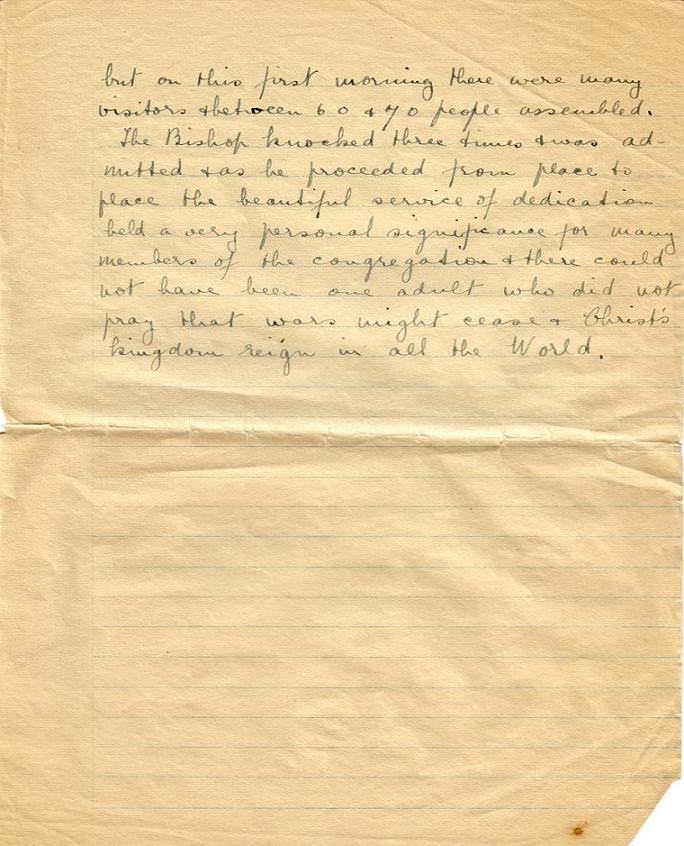 but on this first morning there were many
visitors & between 60 & 70 people assembled.
The Bishop knocked three times & was ad-
mitted & as he proceeded from place to
place the beautiful service of dedication
held a very personal significance for many
members of the congregation & there could
not have been one adult who did not
pray that wars might cease & Christ's
kingdom reign in all the World.